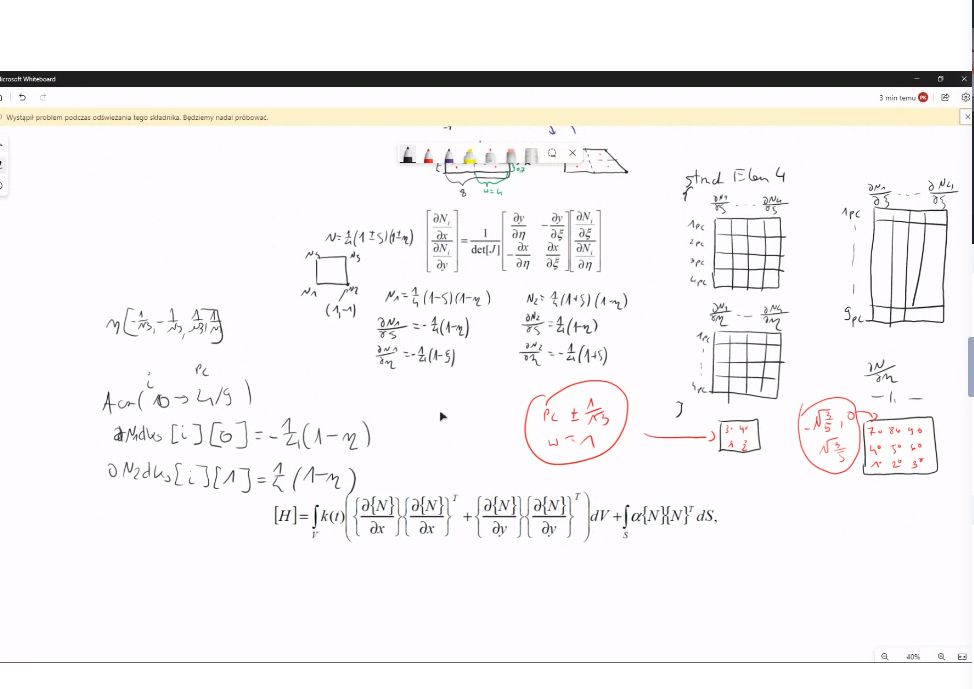 Microsoft Whiteboard
3 min temu PK
Wystąpił problem podczas odświeżania tego składnika. Będziemy nadal próbować.
8 w=4
N=¼(1±ξ)(1±η)
[∂Nᵢ/∂x ∂Nᵢ/∂y] = 1/det[J] [∂y/∂η -∂y/∂ξ -∂x/∂η ∂x/∂ξ] [∂Nᵢ/∂ξ ∂Nᵢ/∂η]
N1 N2
(1,-1)
N1=¼(1-ξ)(1-η) N2=¼(1+ξ)(1-η)
∂N1/∂ξ=-¼(1-η) ∂N2/∂ξ=¼(1-η)
∂N1/∂η=-¼(1-ξ) ∂N2/∂η=-¼(1+ξ)
i pc
∂N1dks[i][0]=-¼(1-η)
∂N2dks[i][1]=¼(1-η)
pc ±1/√3
w=1
struct Elem 4
{
∂N1/∂ξ ... ∂N4/∂ξ
1pc
2pc
3pc
4pc
∂N1/∂η ... ∂N4/∂η
1pc
4pc
}
3 4
1 2
∂N1/∂ξ ... ∂N4/∂ξ
1pc
9pc
∂N/∂η
-11-
-√3/5, 0
√3/5
7 8 9
4 5 6
1 2 3
[H]=∫V k(t)({∂{N}/∂x}{∂{N}/∂x}ᵀ+{∂{N}/∂y}{∂{N}/∂y}ᵀ)dV+∫S α{N}{N}ᵀdS,
40%